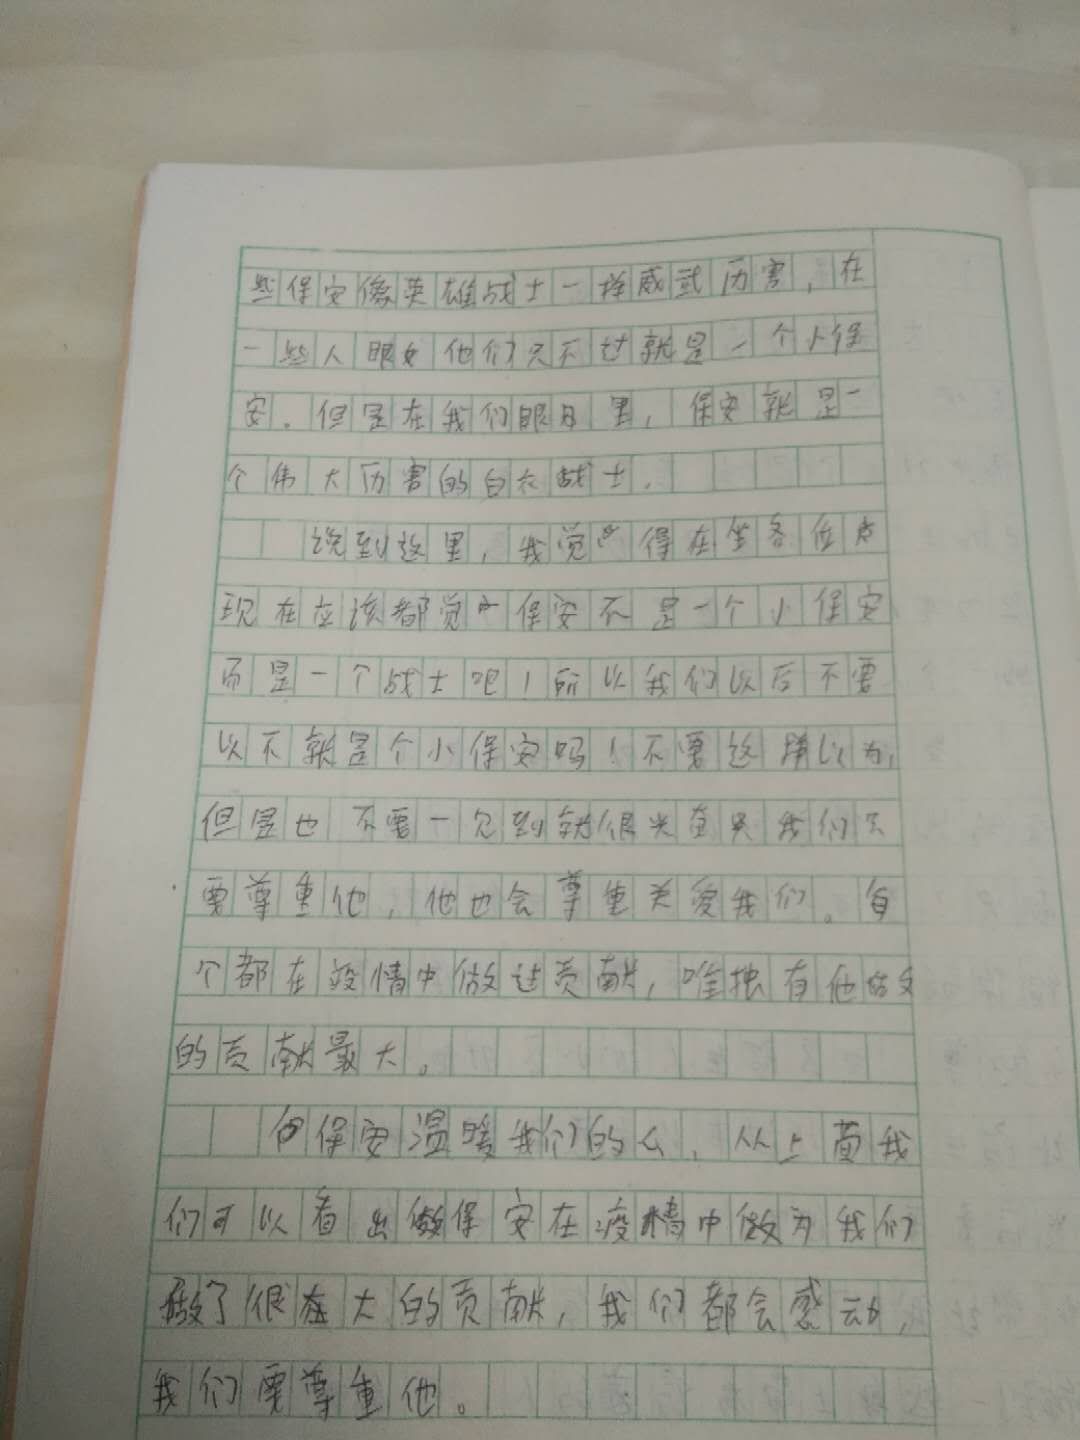 些保安像英雄战士一样威武历害，在
一些人眼女他们只不过就是一个小保
安。但是在我们眼目里，保安就是一
个伟大历害的白衣战士.
说到这里，我觉得在坐各位
现在应该都觉保安不是一个小保安
而是一个战士吧！所以我们以后不要
以不就是个小保安吗！不要这样以为，
但是也不要一见到就很我们只
要尊重他，他也会尊重关爱我们。每
个都在疫情中做过贡献，唯独有他
的贡献最大。
保安温暖我们的心，从上面我
们可以看出做保安在疫情中做为我们
做了很大的贡献，我们都会感动，
我们要尊重他。